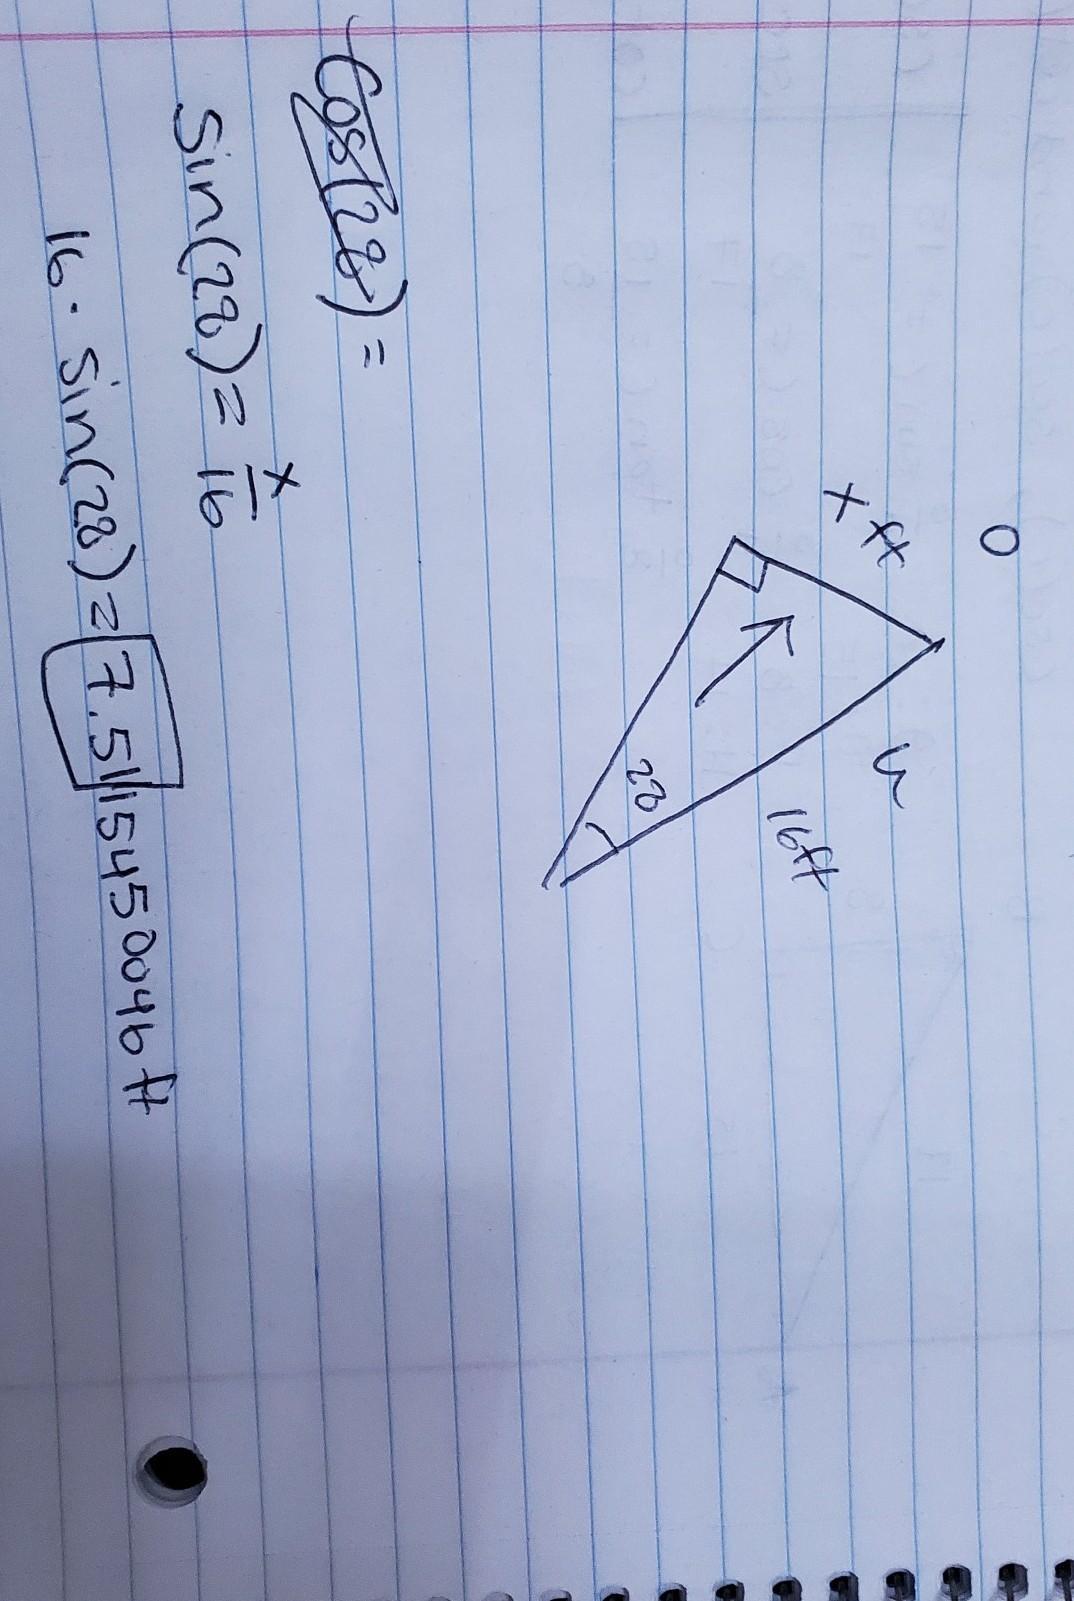 O
x ft
h
16ft
28
Cos(28) =
Sin(28) = x/16
16 · Sin(28) = 7.511545004b ft